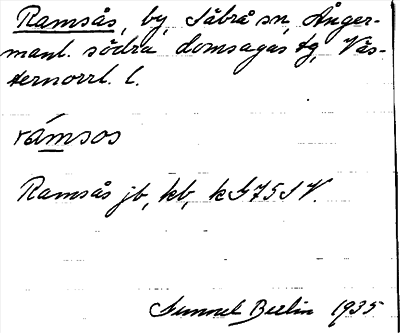 Ramsås, by, Säbrå sn, Ånger-
manl. södra domsagas tg, Väs-
ternorrl. l.
rámsos
Ramsås jb, kb, k G75SV.
Gunnel Berlin 1935